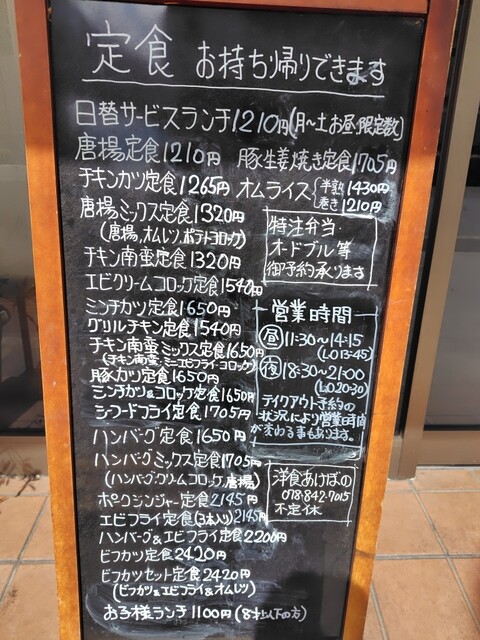 定食 お持ち帰りできます
日替サービスランチ1210円(月〜土お昼限定数)
唐揚定食1210円 豚生姜焼き定食1705円
チキンカツ定食1265円 オムライス 半熟1430円 巻き1210円
唐揚ミックス定食1320円
(唐揚,オムレツ,ポテトコロッケ)
チキン南蛮定食1320円
エビクリームコロッケ定食1540円
ミンチカツ定食1650円
グリルチキン定食1540円
チキン南蛮ミックス定食1650円
(チキン南蛮・ミニエビフライ・コロッケ)
豚カツ定食1650円
ミンチカツ&コロッケ定食1650円
シーフードフライ定食1705円
ハンバーグ定食1650円
ハンバーグミックス定食1705円
(ハンバーグ,クリームコロッケ,唐揚)
ポークジンジャー定食2145円
エビフライ定食(3本入り)2145円
ハンバーグ&エビフライ定食2200円
ビフカツ定食2420円
ビフカツセット定食2420円
(ビフカツ&エビフライ&オムレツ)
お子様ランチ1100円(8才以下の方)
特注弁当・
オードブル等
御予約承ります
営業時間
昼 11:30〜14:15
(LO13:45)
夜 18:30〜21:00
(LO20:30)
テイクアウト予約の
状況により営業時間
が変わる事もあります。
洋食あけぼの
078-842-7015
不定休